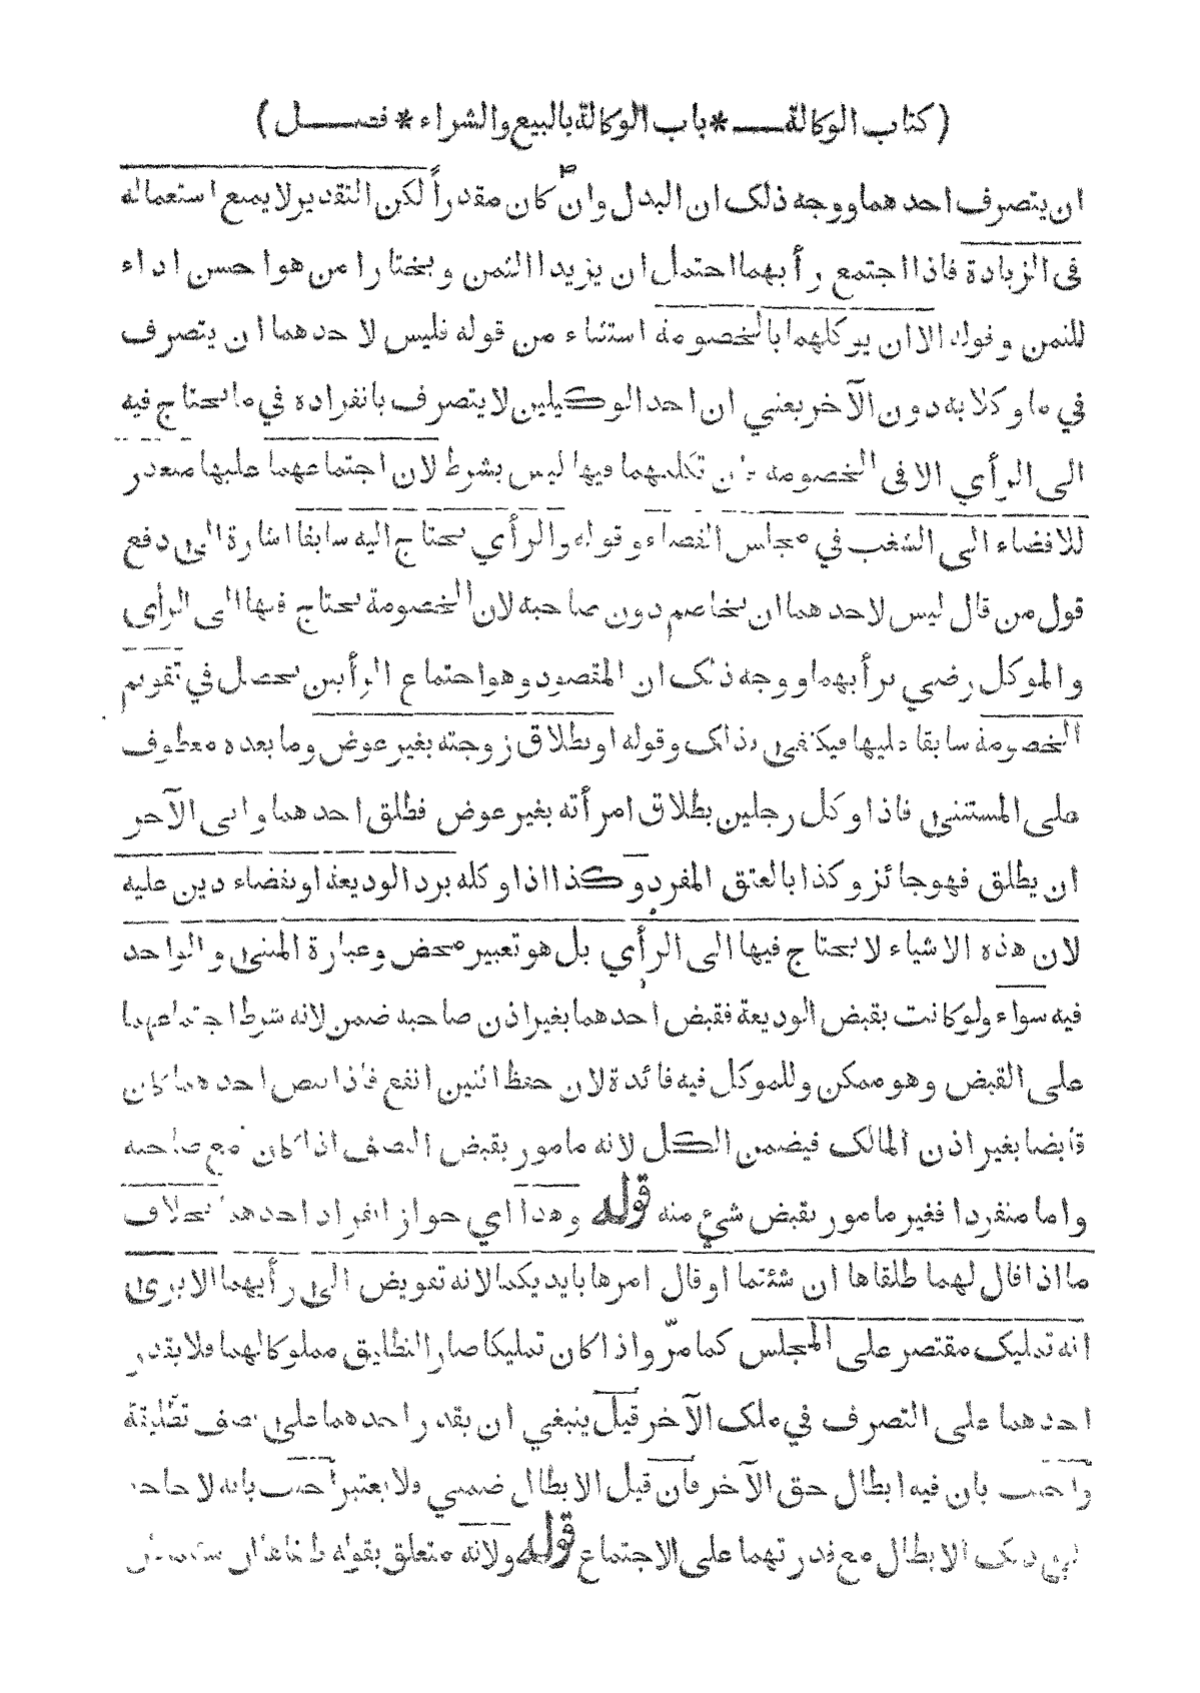 (كتاب الوكالة * باب الوكالة بالبيع والشراء * فصل)
ان يتصرف احدهما ووجه ذلك ان البدل وان كان مقدراً لكن التقدير لا يمنع استعماله
فى الزيادة فاذا اجتمع رأيهما احتمل ان يزيد الثمن ويختارا من هو احسن اداء
للثمن وقوله الا ان يوكلهما بالخصومة استثناء من قوله فليس لاحدهما ان يتصرف
في ما وكلا به دون الآخر يعني ان احد الوكيلين لا يتصرف بانفراده في ما يحتاج فيه
الى الرأي الا فى الخصومة تكلمهما فيها ليس بشرط لان اجتماعهما عليها متعذر
للافضاء الى الشغب في مجلس القضاء وقوله والرأي يحتاج اليه سابقا اشارة الى دفع
قول من قال ليس لاحدهما ان يخاصم دون صاحبه لان الخصومة يحتاج فيها الى الرأى
والموكل رضي برأيهما ووجه ذلك ان المقصود وهو اجتماع الرأيين يحصل في تقويم
الخصومة سابقا عليها فيكتفى بذلك وقوله او بطلاق زوجته بغير عوض وما بعده معطوف
على المستثنى فاذا وكل رجلين بطلاق امرأته بغير عوض فطلق احدهما وابى الآخر
ان يطلق فهو جائز وكذا بالعتق المفرد وكذا اذا وكله برد الوديعة او بقضاء دين عليه
لان هذه الاشياء لا يحتاج فيها الى الرأي بل هو تعبير محض وعبارة المثنى والواحد
فيه سواء ولو كانت بقبض الوديعة فقبض احدهما بغير اذن صاحبه ضمن لانه شرط اجتماعهما
على القبض وهو ممكن وللموكل فيه فائدة لان حفظ اثنين انفع فاذا قبض احدهما كان
قابضا بغير اذن المالك فيضمن الكل لانه مامور بقبض النصف اذا كان مع صاحبه
واما منفردا فغير مامور بقبض شئ منه قوله وهذا اي جواز انفراد احدهما بخلاف
ما اذا قال لهما طلقاها ان شئتما او قال امرها بايديكما لانه تفويض الى رأيهما الا يرى
انه تمليك مقتصر على المجلس كما مرّ واذا كان تمليكا صار التطليق مملوكا لهما فلا يقدر
احدهما على التصرف في ملك الآخر قيل ينبغي ان يقدر احدهما على نصف تطليقة
واجيب بان فيه ابطال حق الآخر فان قيل الابطال ضمني ولا يعتبر اجيب بانه لا حاجة
الى ذلك الابطال مع قدرتهما على الاجتماع قوله ولانه متعلق بقوله طلقاها ان شئتما